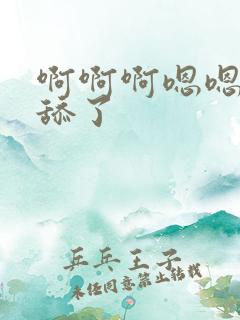 啊啊啊嗯嗯
舔了
乒乓王子
未经同意禁止转载